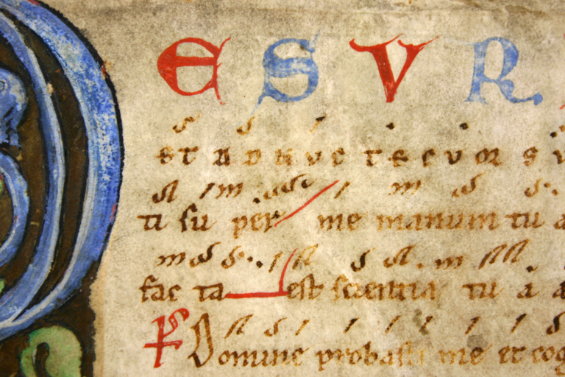 E S V R
ET ADHVC TECVM SV
ti su per me manum tu a
fac ta est scientia tu a a
P Domine probasti me et cog